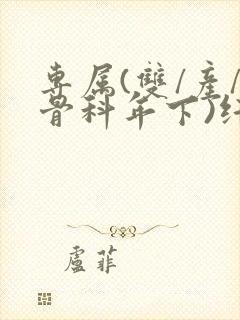 專属(雙/產/
骨科年下)
盧菲